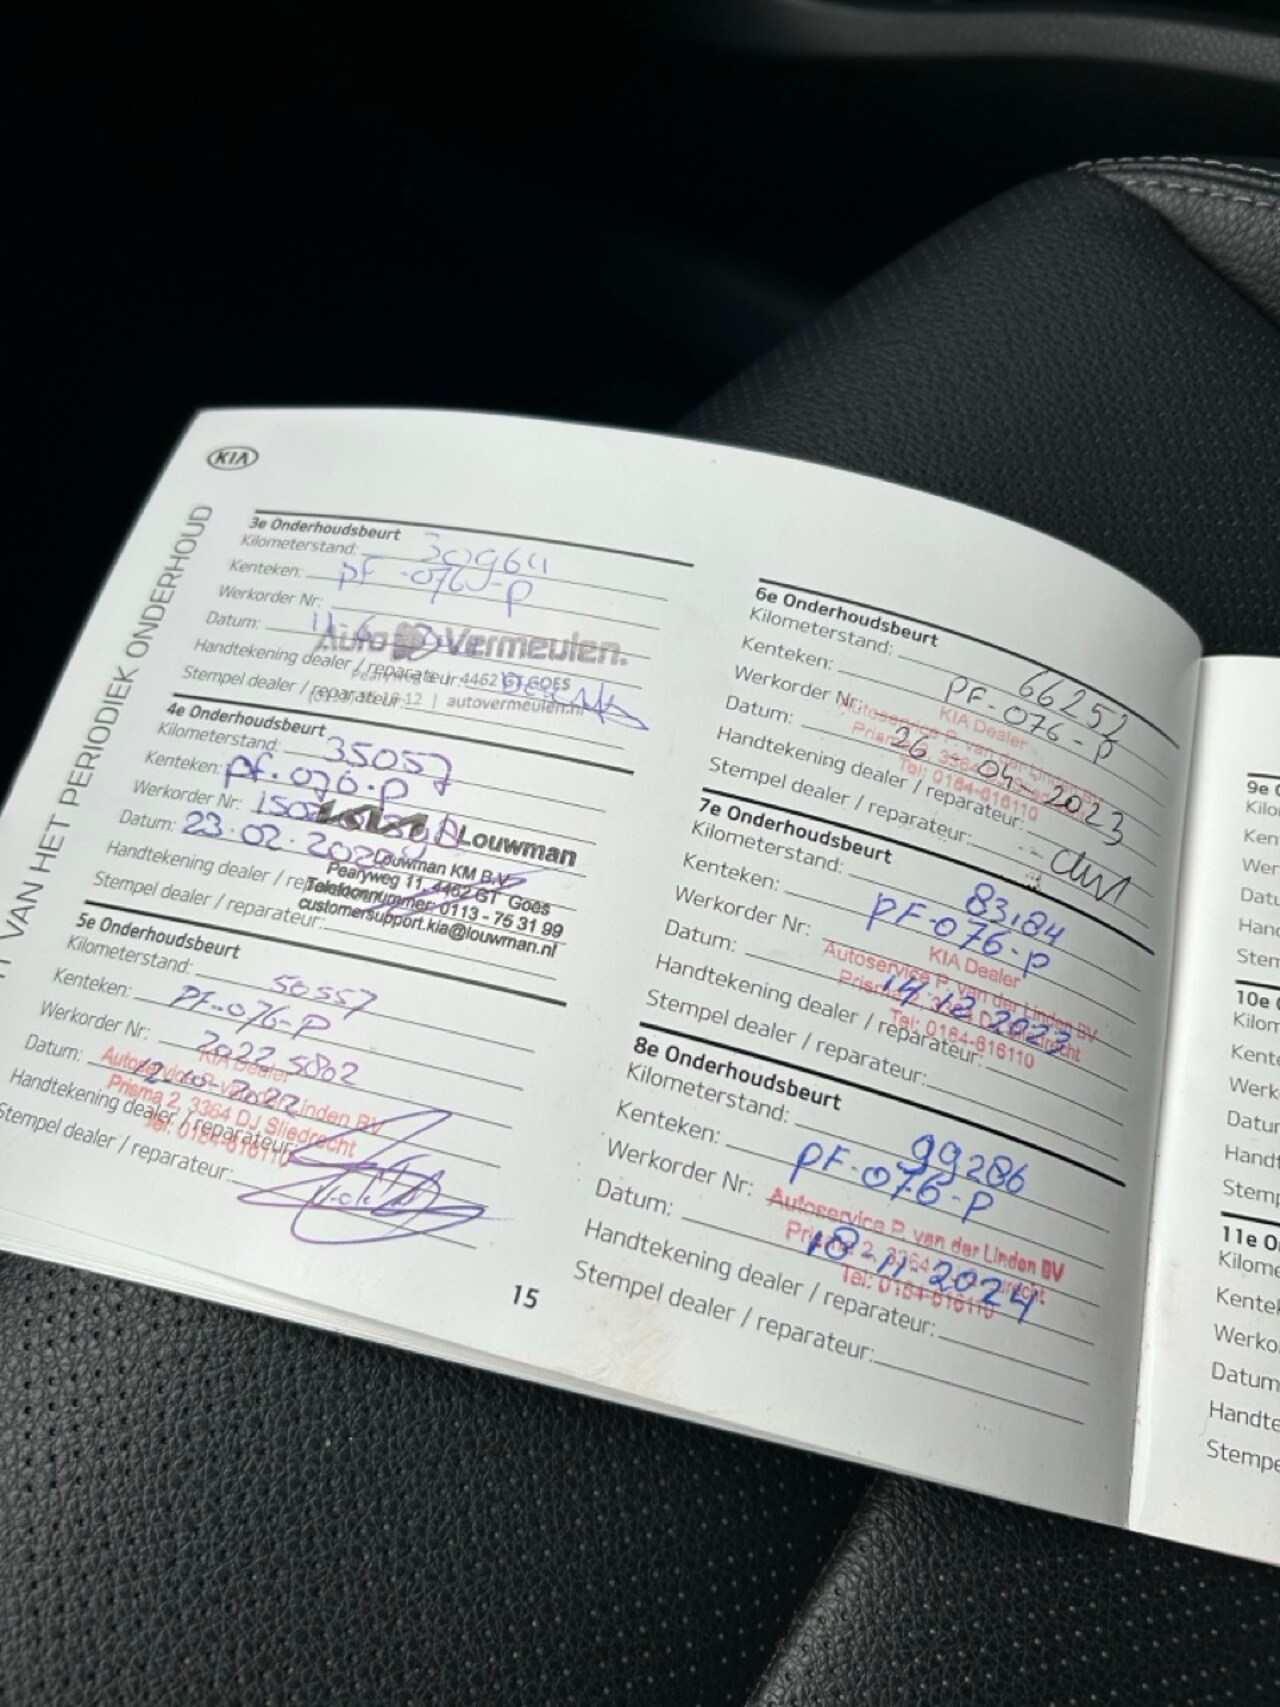 KIA
VAN HET PERIODIEK ONDERHOUD
3e Onderhoudsbeurt
Kilometerstand: 30964
Kenteken: PF-076-P
Werkorder Nr:
Datum: 11-6
Auto Vermeulen.
Handtekening dealer / reparateur:
4462 GT GOES
Stempel dealer / reparateur:
| autovermeulen.nl
4e Onderhoudsbeurt
Kilometerstand: 35057
Kenteken: PF-076-P
Werkorder Nr:
KIA Louwman
Datum: 23-02-2022
Louwman KM B.V.
Handtekening dealer / reparateur:
Pearyweg 11, 4462 GT Goes
Telefoonnummer: 0113 - 75 31 99
Stempel dealer / reparateur:
customersupport.kia@louwman.nl
5e Onderhoudsbeurt
Kilometerstand: 50557
Kenteken: PF-076-P
Werkorder Nr: 20225802
KIA Dealer
Datum: 10-2022
Autoservice P. van der Linden BV
Prisma 2, 3364 DJ Sliedrecht
Handtekening dealer / reparateur:
Tel: 0184-616110
Stempel dealer / reparateur:
15
6e Onderhoudsbeurt
Kilometerstand: 66252
Kenteken: PF-076-P
Werkorder Nr:
KIA Dealer
Autoservice P. van der Linden BV
Datum: 26-04-2023
Prisma 2, 3364
Tel: 0184-616110
Handtekening dealer / reparateur:
Stempel dealer / reparateur:
7e Onderhoudsbeurt
Kilometerstand: 83.184
Kenteken: PF-076-P
Werkorder Nr:
KIA Dealer
Autoservice P. van der Linden BV
Datum: 14-12-2023
Prisma 2, 3364 DJ Sliedrecht
Tel: 0184-616110
Handtekening dealer / reparateur:
Stempel dealer / reparateur:
8e Onderhoudsbeurt
Kilometerstand: 99286
Kenteken: PF-076-P
Werkorder Nr:
Autoservice P. van der Linden BV
Datum: 18-11-2024
Prisma 2, 3364
Tel: 0184-616110
Handtekening dealer / reparateur:
Stempel dealer / reparateur:
9e
Kilo
Ken
Wer
Datu
Hand
Stem
10e
Kilom
Kente
Werk
Datur
Handt
Stemp
11e O
Kilome
Kentek
Werko
Datum
Handte
Stempe